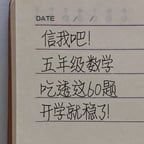 DATE
信我吧!
五年级数学
吃透这60题
开学就稳了!